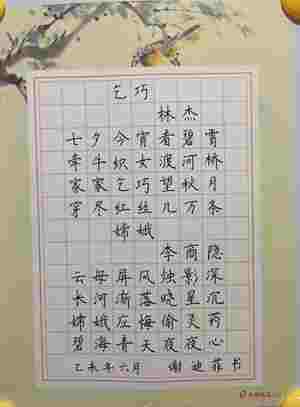 乞巧
林杰
七夕今宵看碧霄
牵牛织女渡河桥
家家乞巧望秋月
穿尽红丝几万条
嫦娥
李商隐
云母屏风烛影深
长河渐落晓星沉
嫦娥应悔偷灵药
碧海青天夜夜心
乙未年六月 谢迪菲书